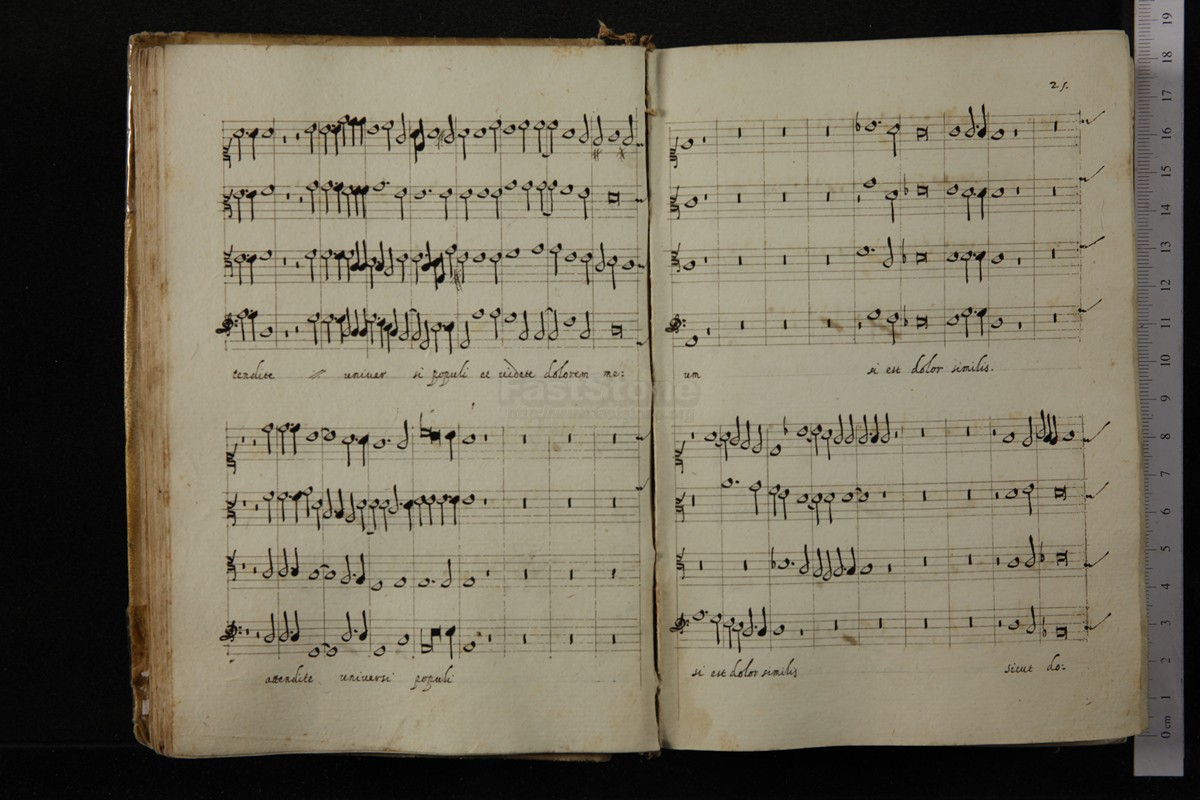 25.
tendite univer si populi et videte dolorem me:
attendite universi populi
um si est dolor similis.
si est dolor similis sicut do:
FastStone
19
18
17
16
15
14
13
12
11
10
9
8
7
6
5
4
3
2
1
0 cm